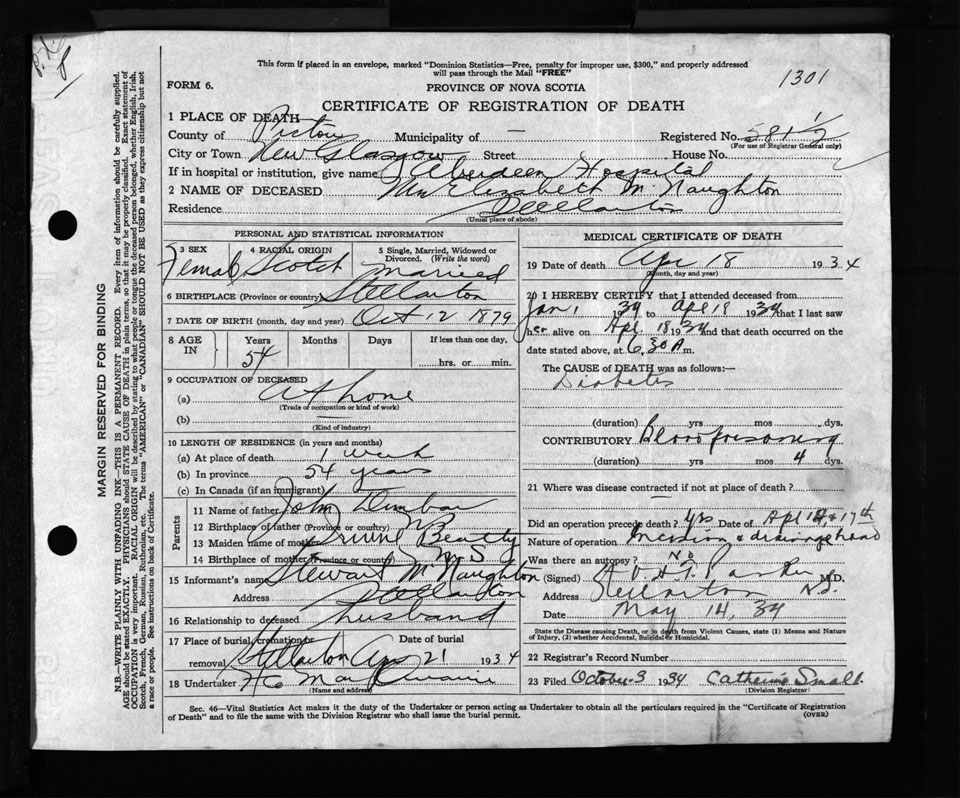 This form if placed in an envelope, marked "Dominion Statistics—Free, penalty for improper use, $300," and properly addressed
will pass through the Mail "FREE"
1301
FORM 6.
PROVINCE OF NOVA SCOTIA
CERTIFICATE OF REGISTRATION OF DEATH
1 PLACE OF DEATH
County of Pictou Municipality of — Registered No.
(For use of Registrar General only)
City or Town New Glasgow Street House No.
If in hospital or institution, give name Aberdeen Hospital
2 NAME OF DECEASED Elizabeth McNaughton
Residence Stellarton
(Usual place of abode)
PERSONAL AND STATISTICAL INFORMATION
3 SEX Female
4 RACIAL ORIGIN Scotch
5 Single, Married, Widowed or Divorced. (Write the word) Married
6 BIRTHPLACE (Province or country) Stellarton
7 DATE OF BIRTH (month, day and year) Oct 12 1879
8 AGE IN Years 54 Months Days If less than one day, hrs. or min.
9 OCCUPATION OF DECEASED
(a) At home
(Trade or occupation or kind of work)
(b) —
(Kind of industry)
10 LENGTH OF RESIDENCE (in years and months)
(a) At place of death 1 week
(b) In province 54 years
(c) In Canada (if an immigrant)
Parents
11 Name of father John Dunbar
12 Birthplace of father (Province or country)
13 Maiden name of mother Beatty
14 Birthplace of mother (Province or country) N S
15 Informant's name Stewart McNaughton
Address Stellarton
16 Relationship to deceased husband
17 Place of burial, cremation or removal Stellarton Date of burial Apr 21 1934
18 Undertaker
(Name and address)
MEDICAL CERTIFICATE OF DEATH
19 Date of death Apr 18 1934
(Month, day and year)
20 I HEREBY CERTIFY that I attended deceased from
Jan 1 1934 to Apl 18 1934 that I last saw
her alive on Apl 18 1934 and that death occurred on
date stated above, at 6.30 A m.
The CAUSE of DEATH was as follows:—
Diabetes
(duration) yrs mos dys.
CONTRIBUTORY Blood poisoning
(duration) yrs mos 4 dys.
21 Where was disease contracted if not at place of death?
Did an operation precede death? Yes Date of Apl 17th
Nature of operation Incision & draining head
Was there an autopsy? No
(Signed) Parker M.D.
Address Stellarton N.S.
Date May 14, 34
State the Disease causing Death, or in death from Violent Causes, state (1) Means and Nature of Injury, (2) whether Accidental, Suicidal or Homicidal.
22 Registrar's Record Number
23 Filed October 3 1934 Catherine Small
(Division Registrar)
Sec. 46—Vital Statistics Act makes it the duty of the Undertaker or person acting as Undertaker to obtain all the particulars required in the "Certificate of Registration
of Death" and to file the same with the Division Registrar who shall issue the burial permit.
(OVER)
MARGIN RESERVED FOR BINDING
N.B.—WRITE PLAINLY WITH UNFADING INK—THIS IS A PERMANENT RECORD. Every item of information should be carefully supplied.
AGE should be stated EXACTLY. PHYSICIANS should STATE CAUSE OF DEATH in plain terms, so that it may be properly classified. Exact statement of
OCCUPATION is very important. RACIAL ORIGIN will be described by stating to what people or tongue the deceased person belonged, whether English, Irish,
Scotch, French, German, Russian, Ruthenian, etc. The terms "AMERICAN" or "CANADIAN" SHOULD NOT BE USED as they express citizenship but not
a race or people. See instructions on back of Certificate.